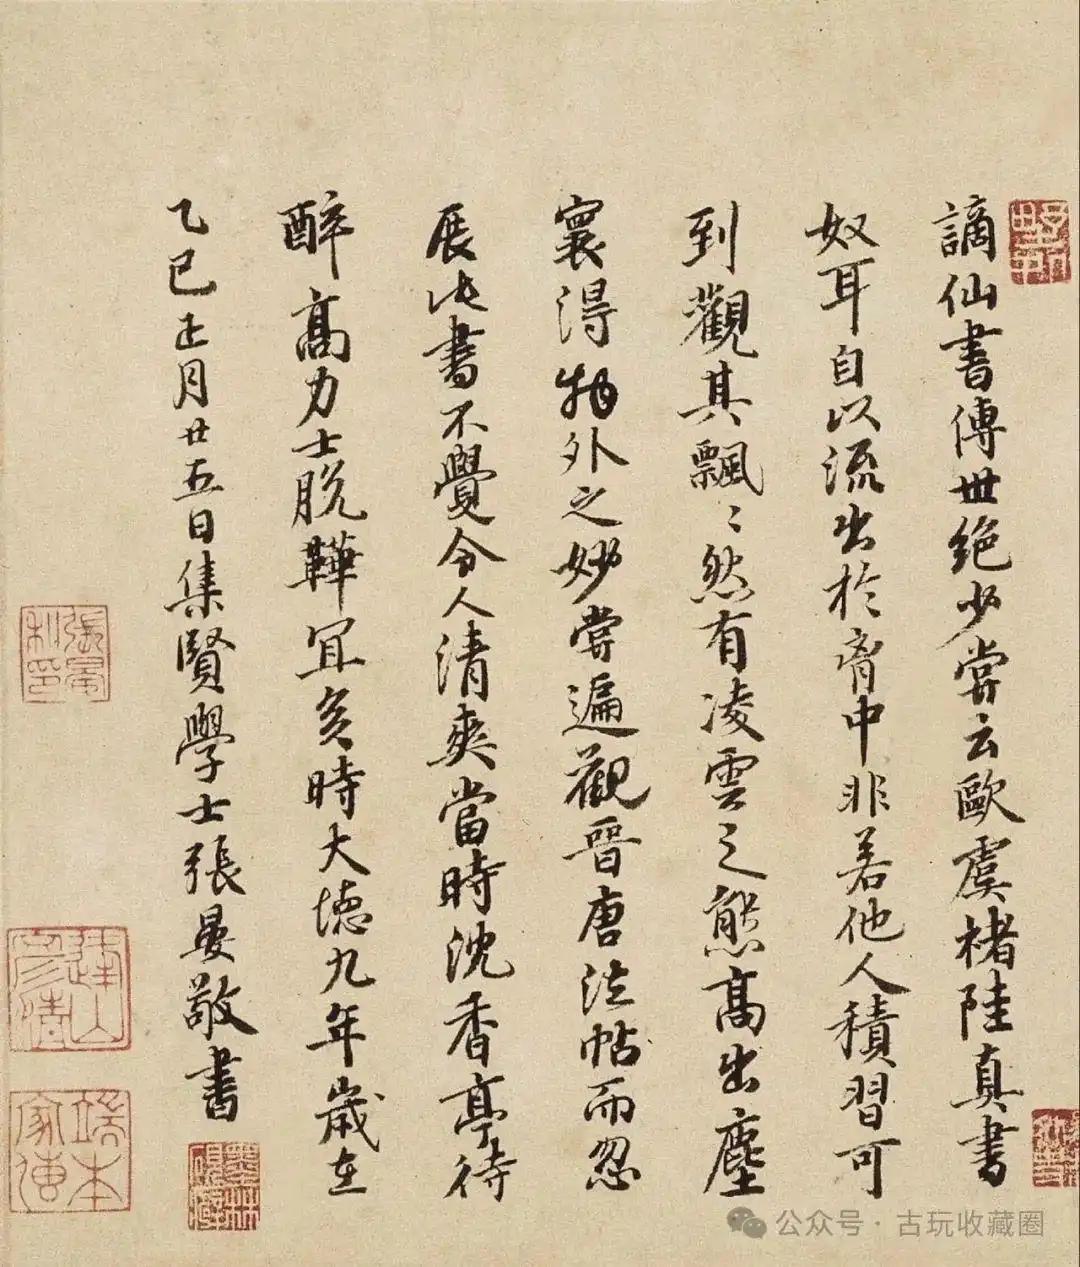 謫仙書傳世絶少嘗云歐虞褚陸真書
奴耳自以流出於胷中非若他人積習可
到觀其飄〻然有凌雲之態高出塵
寰得物外之妙嘗遍觀晉唐法帖而忽
展此書不覺令人清爽當時沈香亭待
醉高力士脱鞾宜矣時大徳九年歲在
乙巳正月廿五日集賢學士張晏敬書
張晏
私印
端本
家傳
公众号·古玩收藏圈